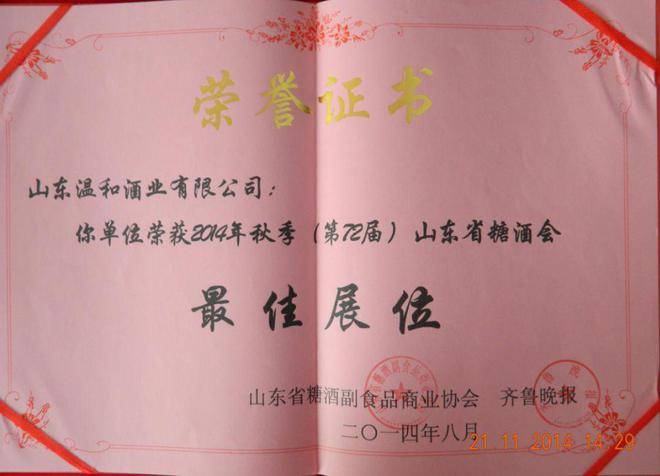 荣誉证书
山东温和酒业有限公司：
你单位荣获2014年秋季（第72届）山东省糖酒会
最佳展位
山东省糖酒副食品商业协会 齐鲁晚报
二〇一四年八月
21.11.2014 14:29